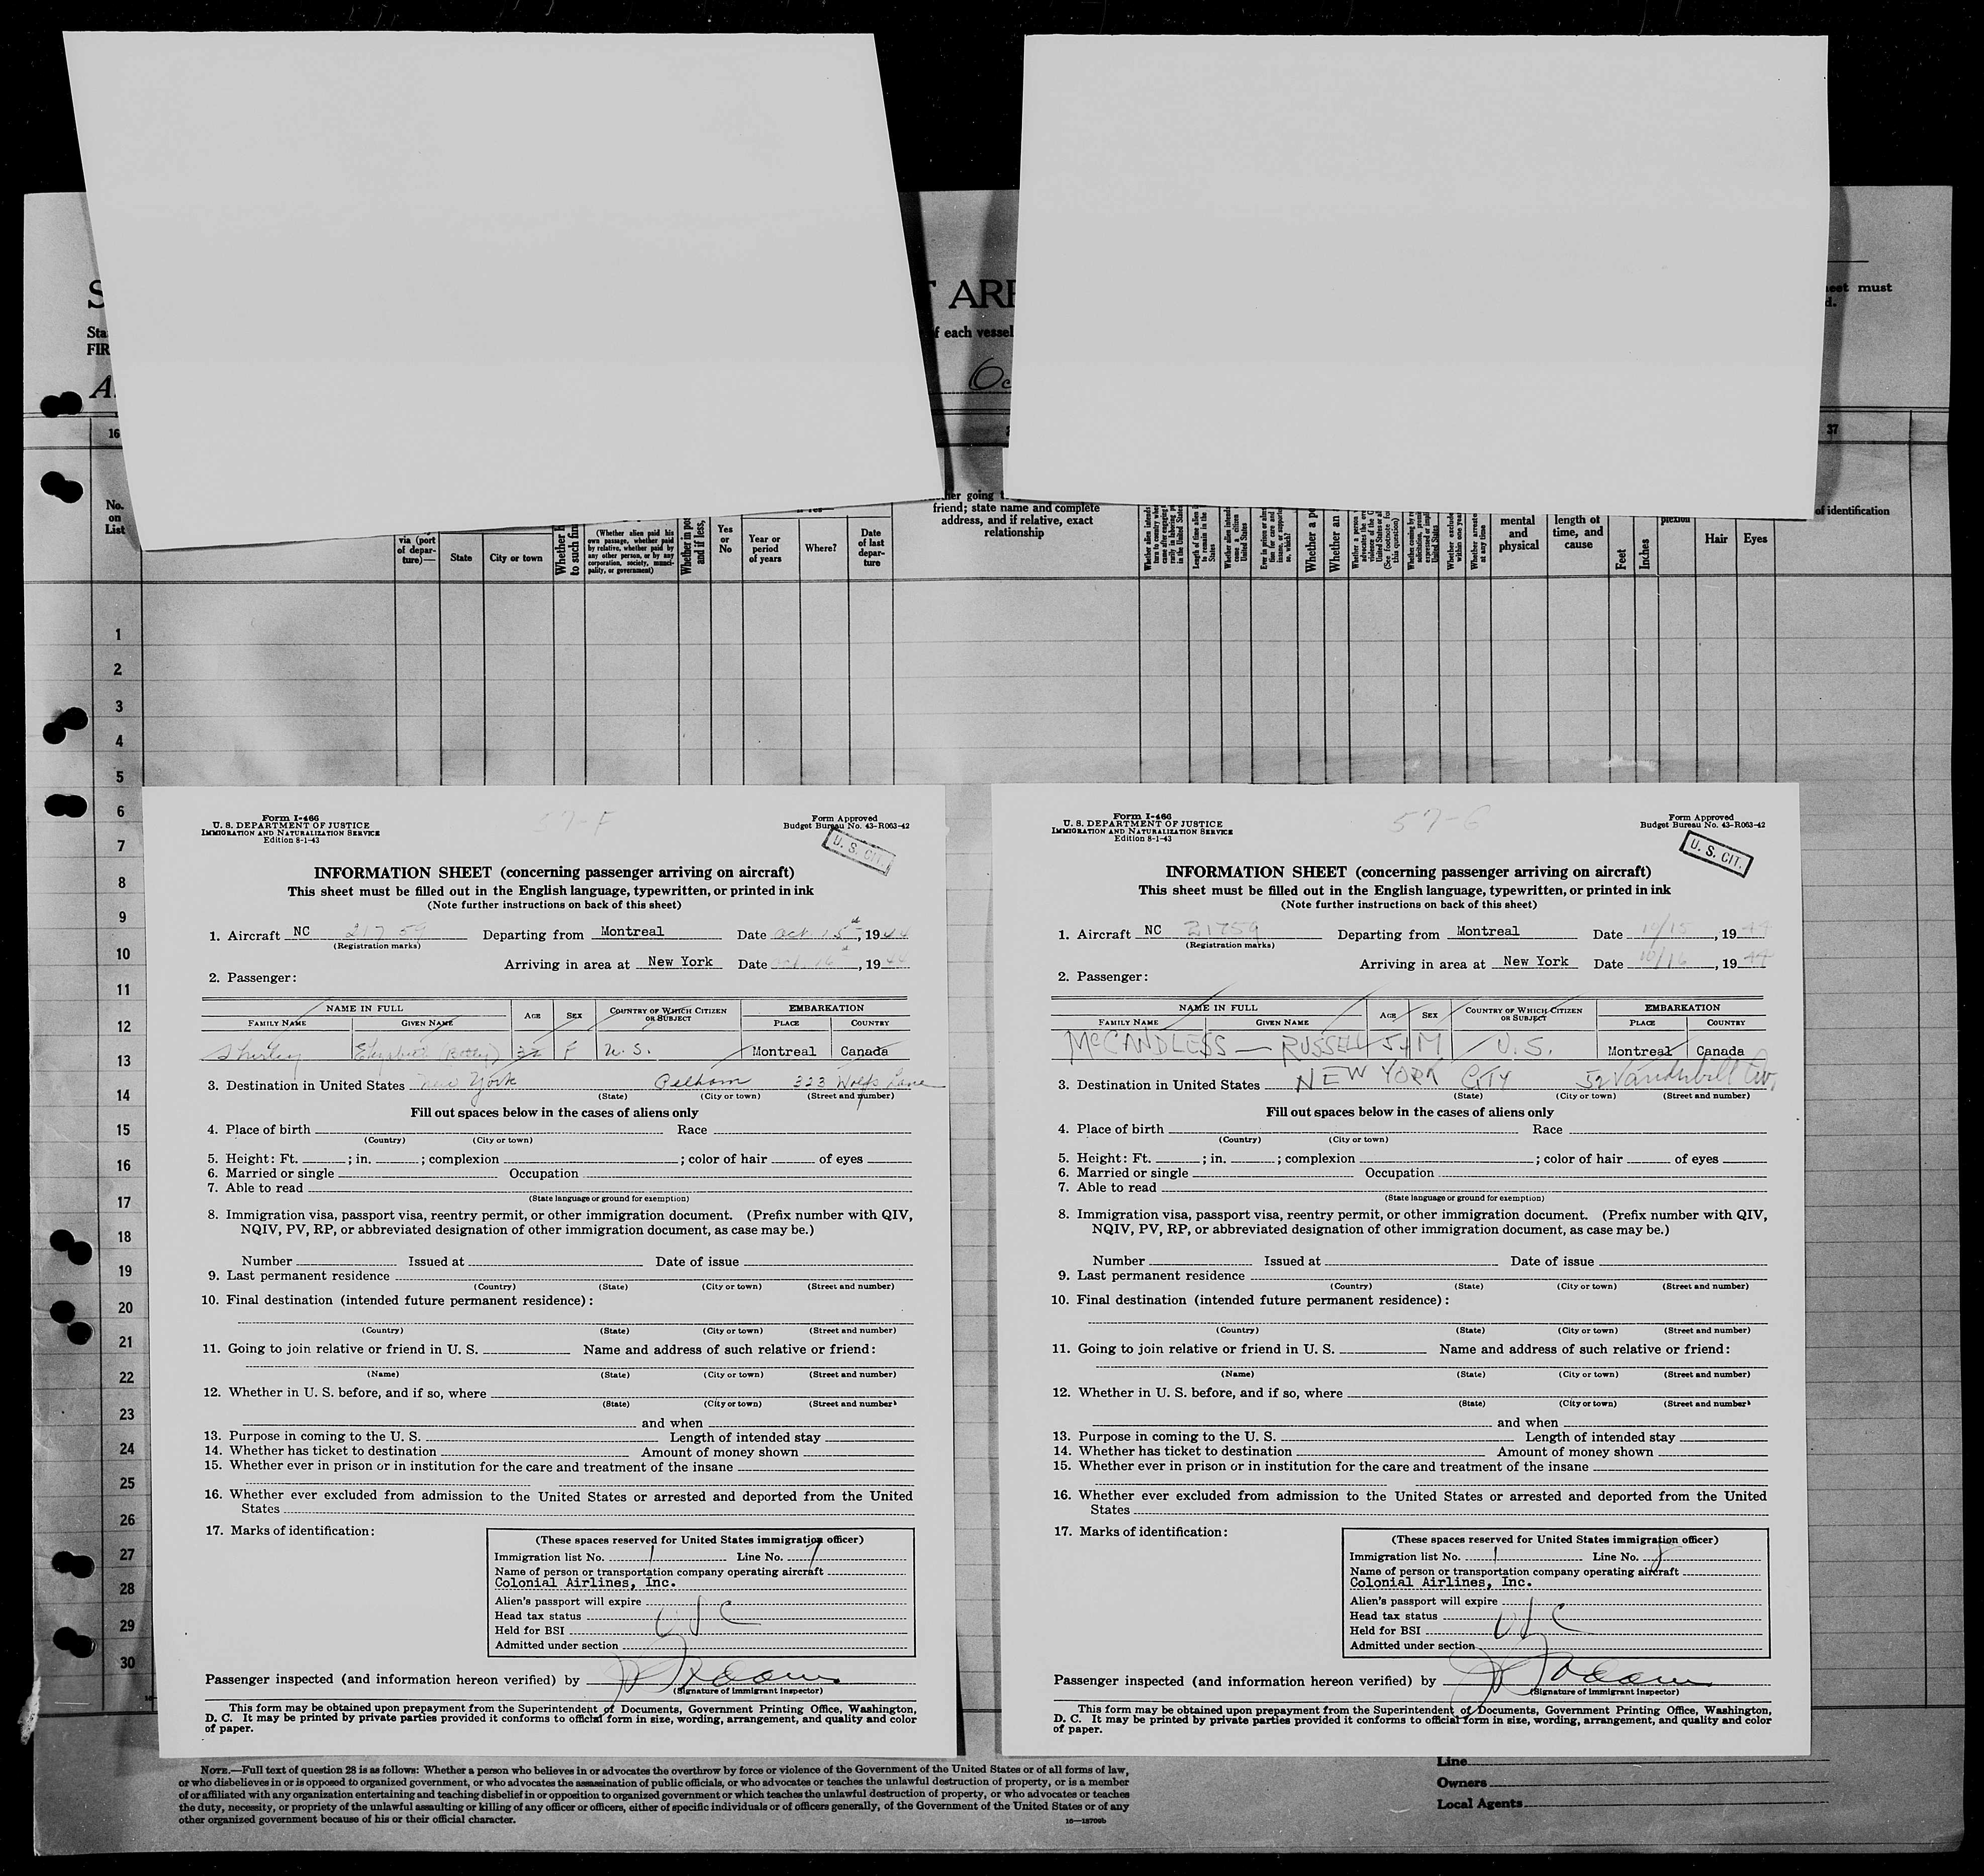 S
T ARR
eet must
d.
Sta
f each vessel
FIR
A
Oc
16
37
No.
on
List
her going t
friend; state name and complete
address, and if relative, exact
relationship
of identification
via (port
of depar-
ture)—
State
City or town
(Whether alien paid his
own passage, whether paid
by relative, whether paid by
any other person, or by any
corporation, society, munici-
pality, or government)
Yes
or
No
Year or
period
of years
Where?
Date
of last
depar-
ture
mental
and
physical
length of
time, and
cause
Feet
Inches
plexion
Hair
Eyes
1
2
3
4
5
6
7
8
9
10
11
12
13
14
15
16
17
18
19
20
21
22
23
24
25
26
27
28
29
30
Form I-466
U. S. DEPARTMENT OF JUSTICE
IMMIGRATION AND NATURALIZATION SERVICE
Edition 8-1-43
57-F
Form Approved
Budget Bureau No. 43-R063-42
U. S. CIT.
INFORMATION SHEET (concerning passenger arriving on aircraft)
This sheet must be filled out in the English language, typewritten, or printed in ink
(Note further instructions on back of this sheet)
1. Aircraft NC 21759 Departing from Montreal Date Oct. 15th, 1944
(Registration marks)
Arriving in area at New York Date Oct. 16th, 1944
2. Passenger:
NAME IN FULL AGE SEX COUNTRY OF WHICH CITIZEN OR SUBJECT EMBARKATION
FAMILY NAME GIVEN NAME PLACE COUNTRY
Shirley Elizabeth (Betty) 32 F U. S. Montreal Canada
3. Destination in United States New York Pelham 323 Wolfs Lane
(State) (City or town) (Street and number)
Fill out spaces below in the cases of aliens only
4. Place of birth Race
(Country) (City or town)
5. Height: Ft. ; in. ; complexion ; color of hair of eyes
6. Married or single Occupation
7. Able to read
(State language or ground for exemption)
8. Immigration visa, passport visa, reentry permit, or other immigration document. (Prefix number with QIV,
NQIV, PV, RP, or abbreviated designation of other immigration document, as case may be.)
Number Issued at Date of issue
9. Last permanent residence
(Country) (State) (City or town) (Street and number)
10. Final destination (intended future permanent residence):
(Country) (State) (City or town) (Street and number)
11. Going to join relative or friend in U. S. Name and address of such relative or friend:
(Name) (State) (City or town) (Street and number)
12. Whether in U. S. before, and if so, where
(State) (City or town) (Street and number)
and when
13. Purpose in coming to the U. S. Length of intended stay
14. Whether has ticket to destination Amount of money shown
15. Whether ever in prison or in institution for the care and treatment of the insane
16. Whether ever excluded from admission to the United States or arrested and deported from the United
States
17. Marks of identification:
(These spaces reserved for United States immigration officer)
Immigration list No. 1 Line No. 7
Name of person or transportation company operating aircraft
Colonial Airlines, Inc.
Alien's passport will expire
Head tax status USC
Held for BSI
Admitted under section
Passenger inspected (and information hereon verified) by
(Signature of Immigrant Inspector)
This form may be obtained upon prepayment from the Superintendent of Documents, Government Printing Office, Washington,
D. C. It may be printed by private parties provided it conforms to official form in size, wording, arrangement, and quality and color
of paper.
Form I-466
U. S. DEPARTMENT OF JUSTICE
IMMIGRATION AND NATURALIZATION SERVICE
Edition 8-1-43
57-G
Form Approved
Budget Bureau No. 43-R063-42
U. S. CIT.
INFORMATION SHEET (concerning passenger arriving on aircraft)
This sheet must be filled out in the English language, typewritten, or printed in ink
(Note further instructions on back of this sheet)
1. Aircraft NC 21759 Departing from Montreal Date 10/15, 1944
(Registration marks)
Arriving in area at New York Date 10/16, 1944
2. Passenger:
NAME IN FULL AGE SEX COUNTRY OF WHICH CITIZEN OR SUBJECT EMBARKATION
FAMILY NAME GIVEN NAME PLACE COUNTRY
MCCANDLESS — RUSSELL 54 M U. S. Montreal Canada
3. Destination in United States NEW YORK CITY 52 Vanderbilt Av.
(State) (City or town) (Street and number)
Fill out spaces below in the cases of aliens only
4. Place of birth Race
(Country) (City or town)
5. Height: Ft. ; in. ; complexion ; color of hair of eyes
6. Married or single Occupation
7. Able to read
(State language or ground for exemption)
8. Immigration visa, passport visa, reentry permit, or other immigration document. (Prefix number with QIV,
NQIV, PV, RP, or abbreviated designation of other immigration document, as case may be.)
Number Issued at Date of issue
9. Last permanent residence
(Country) (State) (City or town) (Street and number)
10. Final destination (intended future permanent residence):
(Country) (State) (City or town) (Street and number)
11. Going to join relative or friend in U. S. Name and address of such relative or friend:
(Name) (State) (City or town) (Street and number)
12. Whether in U. S. before, and if so, where
(State) (City or town) (Street and number)
and when
13. Purpose in coming to the U. S. Length of intended stay
14. Whether has ticket to destination Amount of money shown
15. Whether ever in prison or in institution for the care and treatment of the insane
16. Whether ever excluded from admission to the United States or arrested and deported from the United
States
17. Marks of identification:
(These spaces reserved for United States immigration officer)
Immigration list No. 1 Line No. 8
Name of person or transportation company operating aircraft
Colonial Airlines, Inc.
Alien's passport will expire
Head tax status USC
Held for BSI
Admitted under section
Passenger inspected (and information hereon verified) by
(Signature of Immigrant Inspector)
This form may be obtained upon prepayment from the Superintendent of Documents, Government Printing Office, Washington,
D. C. It may be printed by private parties provided it conforms to official form in size, wording, arrangement, and quality and color
of paper.
NOTE.—Full text of question 28 is as follows: Whether a person who believes in or advocates the overthrow by force or violence of the Government of the United States or of all forms of law,
or who disbelieves in or is opposed to organized government, or who advocates the assassination of public officials, or who advocates or teaches the unlawful destruction of property, or is a member
of or affiliated with any organization entertaining and teaching disbelief in or opposition to organized government or which teaches the unlawful destruction of property, or who advocates or teaches
the duty, necessity, or propriety of the unlawful assaulting or killing of any officer or officers, either of specific individuals or of officers generally, of the Government of the United States or of any
other organized government because of his or their official character.
16—18700b
Line
Owners
Local Agents